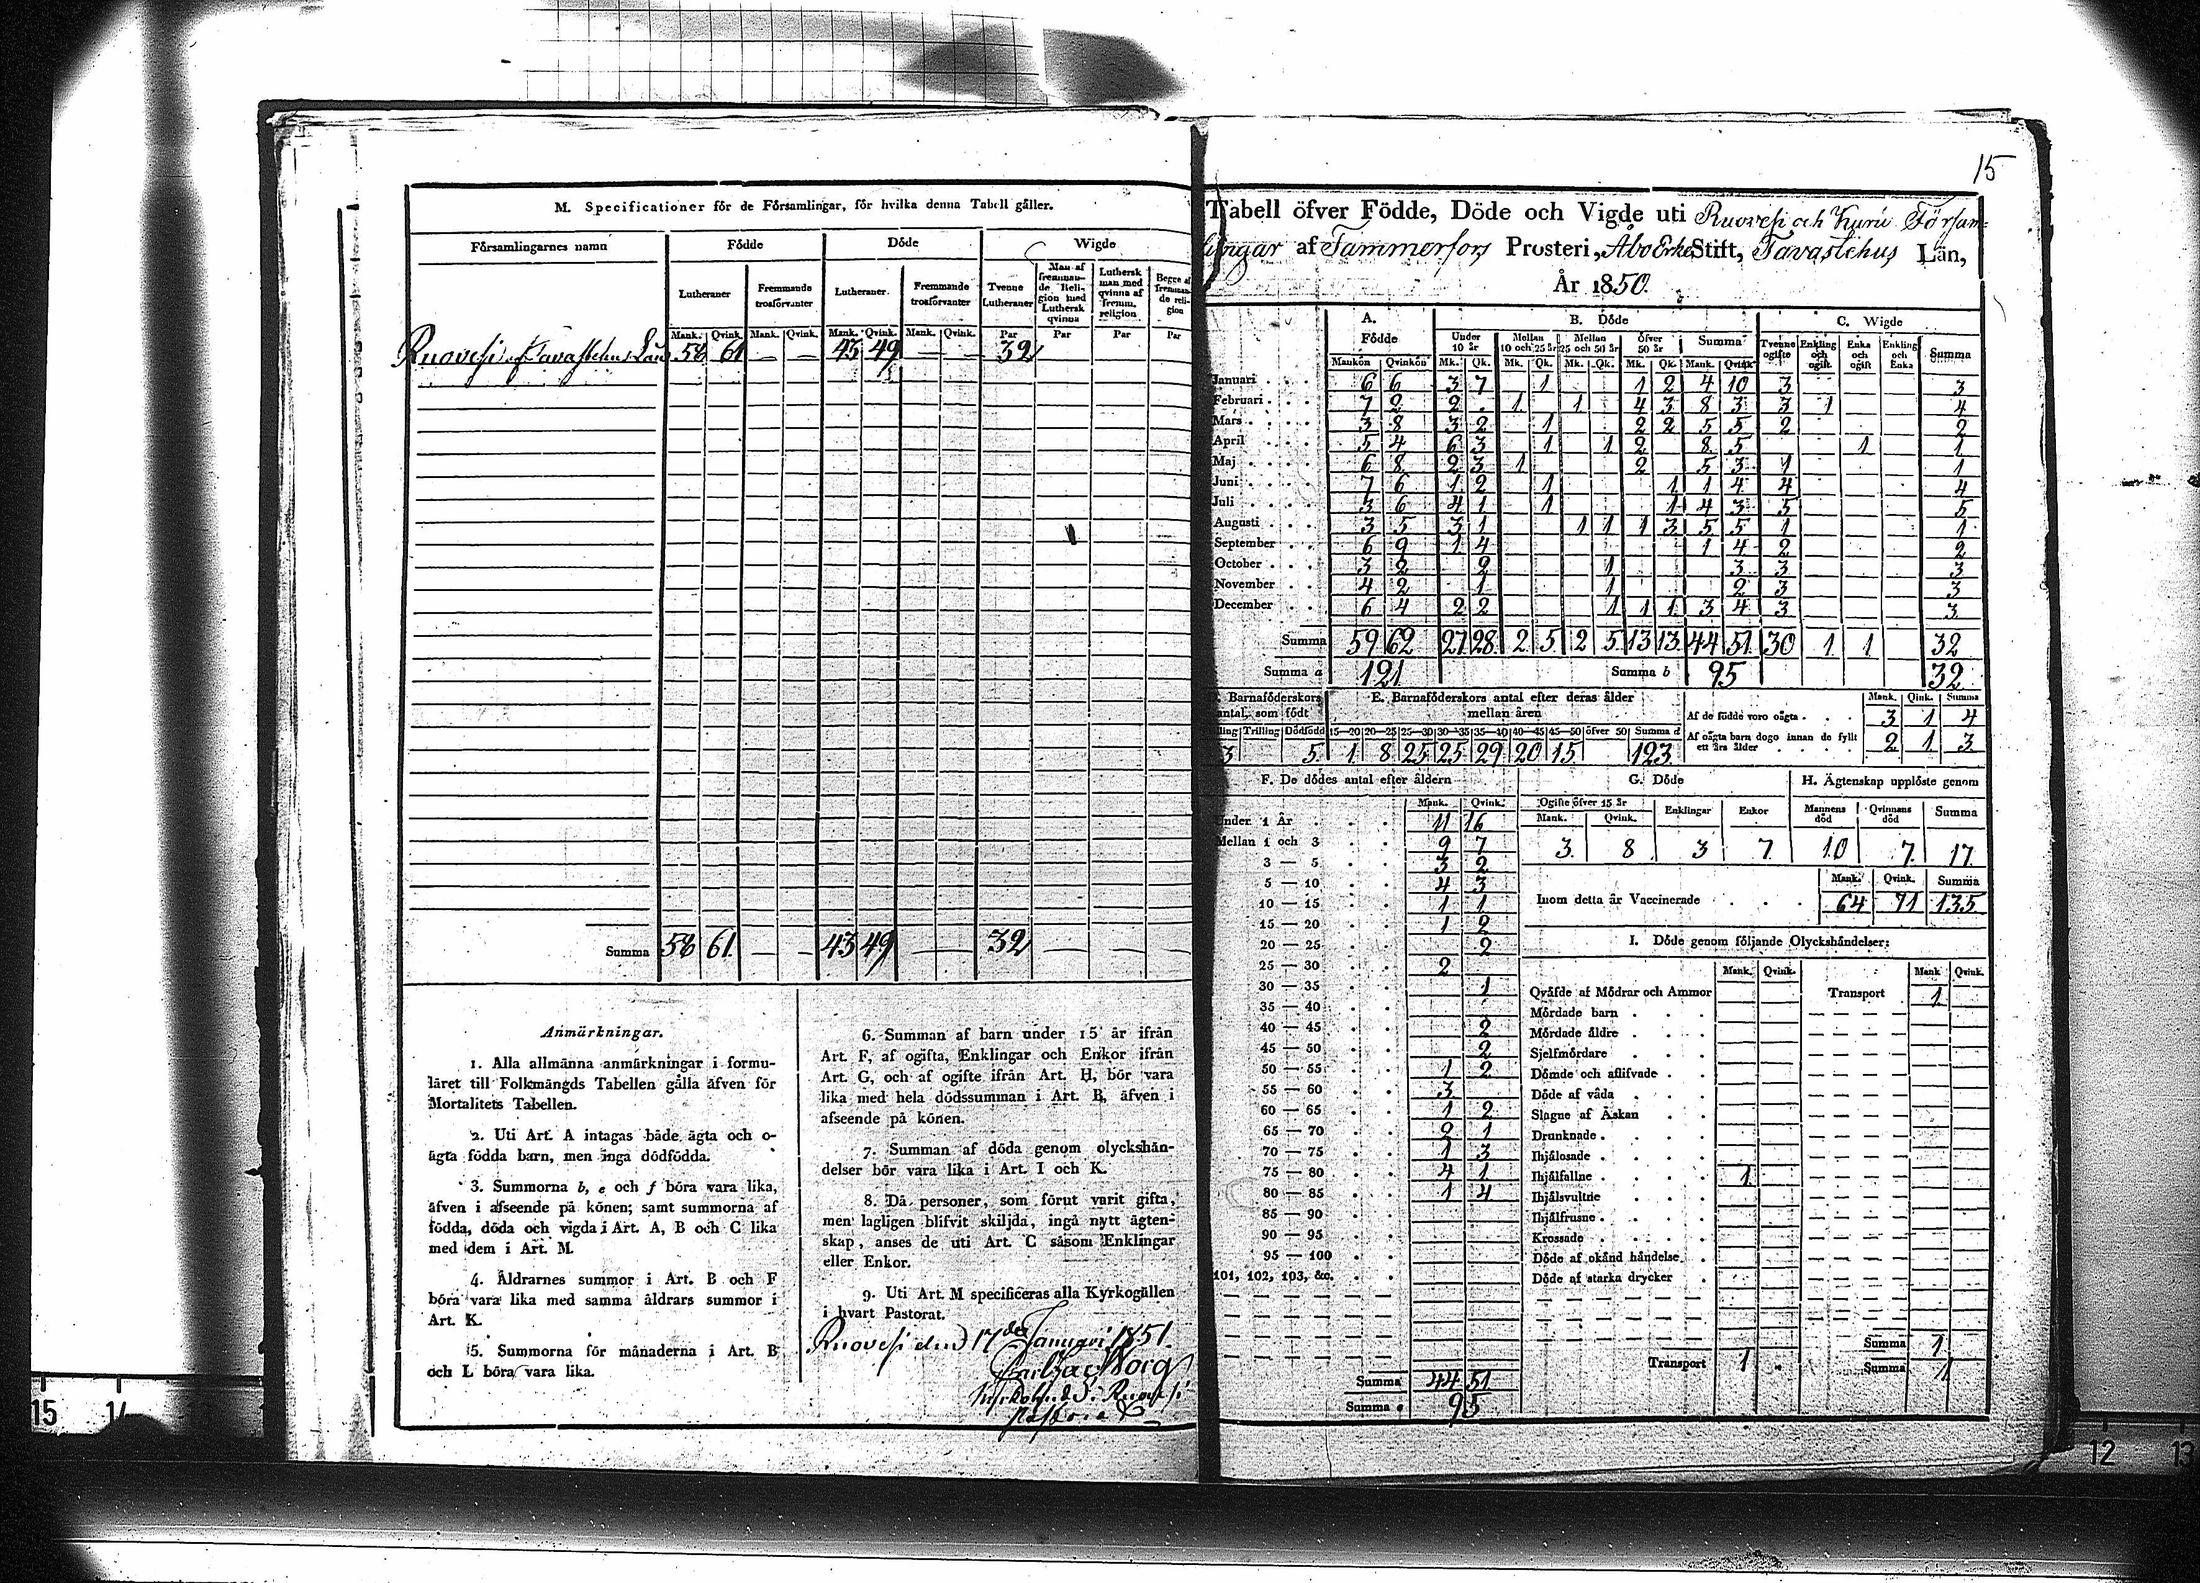 M. Specificationer för de Församlingar, för hvilka denna Tabell gäller.
Församlingarnes namn Födde Döde Wigde
Lutheraner Fremmande trosförvanter Lutheraner Fremmande trosförvanter Tvenne Lutheraner Man af fremmande Religion med Luthersk qvinna Luthersk man med qvinna af fremm. religion Begge af fremmande religion
Mank. Qvink. Mank. Qvink. Mank. Qvink. Mank. Qvink. Par Par Par Par
Ruovesi af Tavastehus Län 58 61 — — 43 49 — — 32
Summa 58 61 — — 43 49 — — 32 — — —
Anmärkningar.
1. Alla allmänna anmärkningar i formu-
läret till Folkmängds Tabellen gälla äfven för
Mortalitets Tabellen.
2. Uti Art. A intagas både ägta och o-
ägta födda barn, men inga dödfödda.
3. Summorna b, e och f böra vara lika,
äfven i afseende på könen; samt summorna af
födda, döda och vigda i Art. A, B och C lika
med dem i Art. M.
4. Åldrarnes summor i Art. B och F
böra vara lika med samma åldrars summor i
Art. K.
5. Summorna för månaderna i Art. B
och L böra vara lika.
6. Summan af barn under 15 år ifrån
Art. F, af ogifta, Enklingar och Enkor ifrån
Art. G, och af ogifte ifrån Art. H, bör vara
lika med hela dödssumman i Art. B, äfven i
afseende på könen.
7. Summan af döda genom olyckshän-
delser bör vara lika i Art. I och K.
8. Då personer, som förut varit gifta,
men lagligen blifvit skiljda, ingå nytt ägten-
skap, anses de uti Art. C såsom Enklingar
eller Enkor.
9. Uti Art. M specificeras alla Kyrkogällen
i hvart Pastorat.
Ruovesi den 17de Januari 1851.
15
Tabell öfver Födde, Döde och Vigde uti Ruovesi och Kuru Försam-
lingar af Tammerfors Prosteri, Åbo Erke Stift, Tavastehus Län,
År 1850.
A. Födde B. Döde C. Wigde
Under 10 år Mellan 10 och 25 år Mellan 25 och 50 år öfver 50 år Summa Tvenne ogifte Enkling och ogift Enka och ogift Enkling och Enka Summa
Mankön Qvinkön Mk. Qk. Mk. Qk. Mk. Qk. Mk. Qk. Mank. Qvink.
Januari 6 6 3 7 1 1 2 4 10 3 3
Februari 7 2 2 . 1 1 4 3 8 3 3 1 4
Mars 3 8 3 2 1 2 2 5 5 2 2
April 5 4 6 3 1 1 2 8 5 1 1
Maj 6 8 2 3 1 2 5 3 1 1
Juni 7 6 1 2 1 1 1 4 4 4
Juli 3 6 4 1 1 1 4 3 5 5
Augusti 3 5 3 1 1 1 1 3 5 5 1 1
September 6 9 1 4 1 4 2 2
October 3 2 2 1 3 3 3
November 4 2 1 1 2 3 3
December 6 4 2 2 1 1 1 3 4 3 3
Summa 59 62 27 28 2 5 2 5 13 13 44 51 30 1 1 32
Summa a 121 Summa b 95 32
Barnaföderskors antal, som födt
lling Trilling Dödfödd
3 5
E. Barnaföderskors antal efter deras ålder
mellan åren
15—20 20—25 25—30 30—35 35—40 40—45 45—50 öfver 50 Summa d
1 8 25 25 29 20 15 123
Mank. Qink. Summa
Af de födde voro oägta 3 1 4
Af oägta barn dogo innan de fyllt ett års ålder 2 1 3
F. De dödes antal efter åldern
Mank. Qvink.
Under 1 År 11 16
Mellan 1 och 3 9 7
3 — 5 3 2
5 — 10 4 3
10 — 15 1 1
15 — 20 1 2
20 — 25 2
25 — 30 2
30 — 35 1
35 — 40
40 — 45 2
45 — 50 2
50 — 55 1 2
55 — 60 3
60 — 65 1 2
65 — 70 2 1
70 — 75 1 3
75 — 80 4 1
80 — 85 1 4
85 — 90
90 — 95
95 — 100
101, 102, 103, &c.
Summa 44 51
Summa e 95
G. Döde
Ogifte öfver 15 år Enklingar Enkor
Mank. Qvink.
3 8 3 7
H. Ägtenskap upplöste genom
Mannens död Qvinnans död Summa
10 7 17
Mank. Qvink. Summa
Inom detta år Vaccinerade 64 71 135
I. Döde genom följande Olyckshändelser:
Mank. Qvink. Mank Qvink.
Qväfde af Mödrar och Ammor Transport 1
Mördade barn
Mördade äldre
Sjelfmördare
Dömde och aflifvade
Döde af våda
Slagne af Åskan
Drunknade
Ihjälosade
Ihjälfallne 1
Ihjälsvultne
Ihjälfrusne
Krossade
Döde af okänd händelse
Döde af starka drycker
Summa 1
Transport 1 Summa 1
15 14 12 13